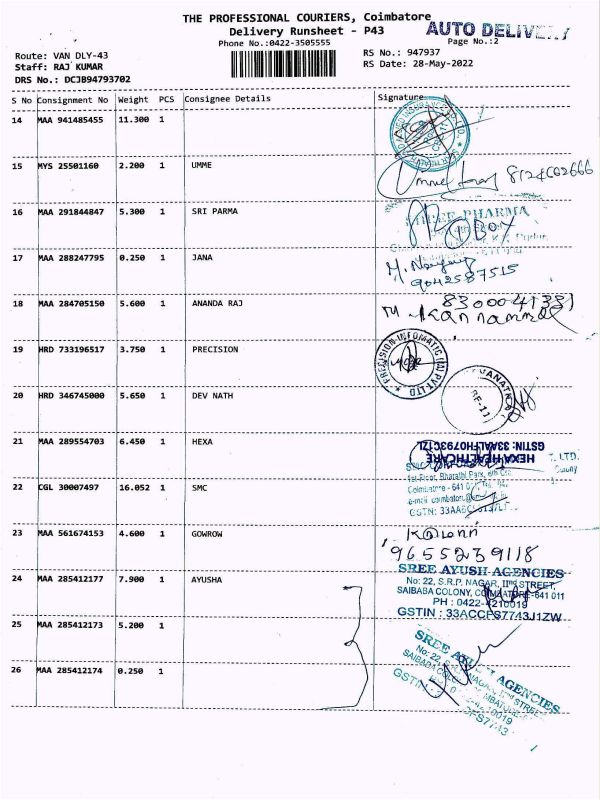 THE PROFESSIONAL COURIERS, Coimbatore
Delivery Runsheet - P43
AUTO DELIVERY
Phone No.:0422-3505555
Page No.:2
Route: VAN DLY-43
RS No.: 947937
Staff: RAJ KUMAR
RS Date: 28-May-2022
DRS No.: DCJB94793702
S No Consignment No Weight PCS Consignee Details Signature
14 MAA 941485455 11.300 1
15 MYS 25501160 2.200 1 UMME
8124602666
16 MAA 291844847 5.300 1 SRI PARMA
SHREE PHARMA
17 MAA 288247795 0.250 1 JANA
9042587515
18 MAA 284705150 5.600 1 ANANDA RAJ
8300041381
Kannammal
19 HRD 733196517 3.750 1 PRECISION
PRECISION INFOMATIC (M) PVT LTD
20 HRD 346745000 5.650 1 DEV NATH
21 MAA 289554703 6.450 1 HEXA
HEXA HEALTHCARE
GSTIN: 33AALFH0793C1ZL
22 CGL 30007497 16.052 1 SMC
1st Floor, Bharathi Park,
Coimbatore - 641
23 MAA 561674153 4.600 1 GOWROW
9655239118
24 MAA 285412177 7.900 1 AYUSHA
SREE AYUSH AGENCIES
No: 22, S.R.P. NAGAR, IInd STREET,
SAIBABA COLONY, COIMBATORE-641 011
PH : 0422-4210019
GSTIN : 33ACCFS7743J1ZW
25 MAA 285412173 5.200 1
26 MAA 285412174 0.250 1
SREE AYUSH AGENCIES